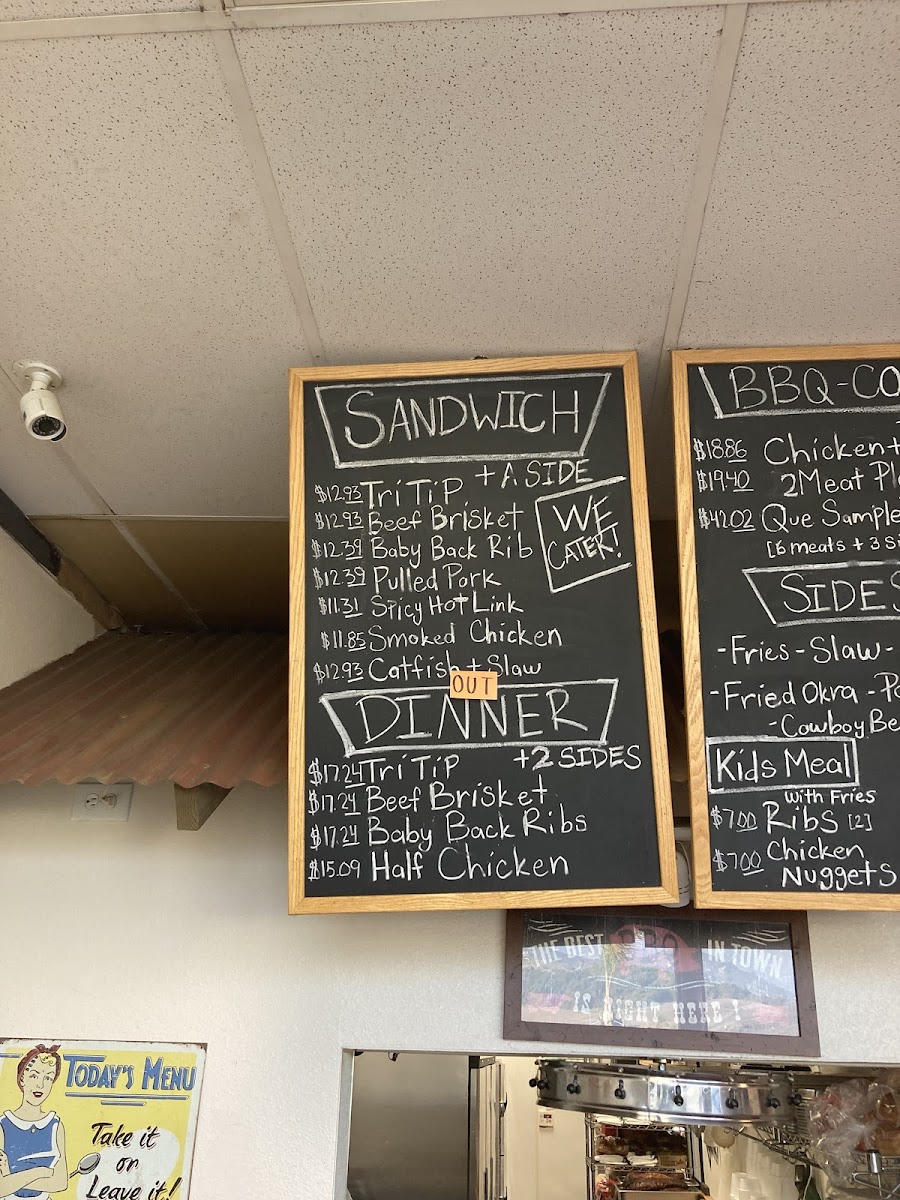 SANDWICH
+ A SIDE
$12.93 Tri Tip
$12.93 Beef Brisket
$12.39 Baby Back Rib
$12.39 Pulled Pork
$11.31 Spicy Hot Link
$11.85 Smoked Chicken
$12.93 Catfish + Slaw
WE
CATER!
OUT
DINNER
+2 SIDES
$17.24 Tri Tip
$17.24 Beef Brisket
$17.24 Baby Back Ribs
$15.09 Half Chicken
BBQ-CO
$18.86 Chicken +
$19.40 2 Meat Pl
$42.02 Que Sample
[6 meats + 3 Si
SIDES
-Fries -Slaw -
-Fried Okra -Po
-Cowboy Be
Kids Meal
with Fries
$7.00 Ribs [2]
$7.00 Chicken
Nuggets
THE BEST BBQ IN TOWN
IS RIGHT HERE!
TODAY'S MENU
Take it
or
Leave it!